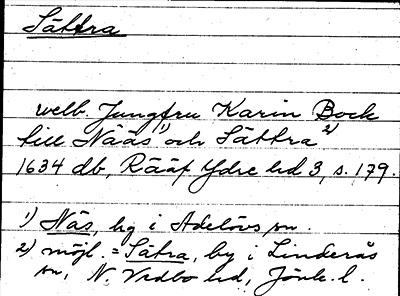 Sättra
welb. Jungfru Karin Bock
till Nääs¹⁾ och Sättra²⁾
1634 db, Rääf Ydre hd 3, s. 179.
1) Näs, hg i Adelövs sn.
2) möjl. = Sätra, by i Linderås
sn, N. Vedbo hd, Jönk. l.